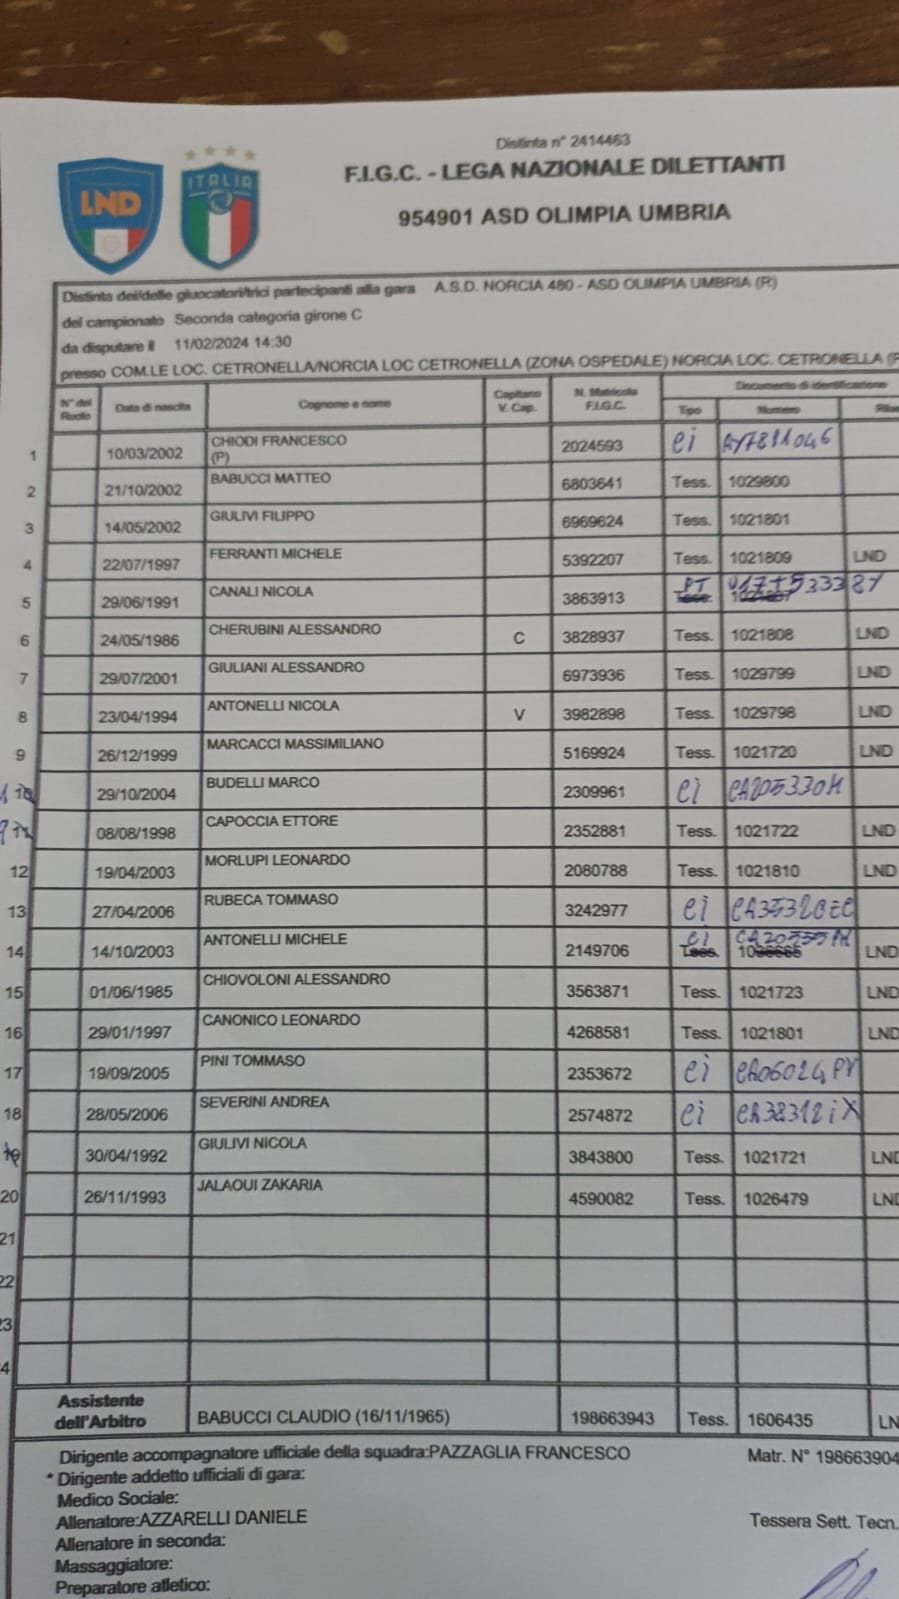 Distinta n° 2414463
F.I.G.C. - LEGA NAZIONALE DILETTANTI
954901 ASD OLIMPIA UMBRIA
LND
ITALIA
Distinta dei/delle giuocatori/trici partecipanti alla gara A.S.D. NORCIA 480 - ASD OLIMPIA UMBRIA (R)
del campionato Seconda categoria girone C
da disputare il 11/02/2024 14:30
presso COM.LE LOC. CETRONELLA/NORCIA LOC CETRONELLA (ZONA OSPEDALE) NORCIA LOC. CETRONELLA
N° del Ruolo Data di nascita Cognome e nome Capitano V. Cap. N. Matricola F.I.G.C. Documento di identificazione
Tipo Numero
1 10/03/2002 CHIODI FRANCESCO (P) 2024593 ei AY7811046
2 21/10/2002 BABUCCI MATTEO 6803641 Tess. 1029800
3 14/05/2002 GIULIVI FILIPPO 6969624 Tess. 1021801
4 22/07/1997 FERRANTI MICHELE 5392207 Tess. 1021809 LND
5 29/06/1991 CANALI NICOLA 3863913 PT
6 24/05/1986 CHERUBINI ALESSANDRO C 3828937 Tess. 1021808 LND
7 29/07/2001 GIULIANI ALESSANDRO 6973936 Tess. 1029799 LND
8 23/04/1994 ANTONELLI NICOLA V 3982898 Tess. 1029798 LND
9 26/12/1999 MARCACCI MASSIMILIANO 5169924 Tess. 1021720 LND
29/10/2004 BUDELLI MARCO 2309961 ei CA205330H
08/08/1998 CAPOCCIA ETTORE 2352881 Tess. 1021722 LND
12 19/04/2003 MORLUPI LEONARDO 2080788 Tess. 1021810 LND
13 27/04/2006 RUBECA TOMMASO 3242977 ei
14 14/10/2003 ANTONELLI MICHELE 2149706 ei LND
15 01/06/1985 CHIOVOLONI ALESSANDRO 3563871 Tess. 1021723 LND
16 29/01/1997 CANONICO LEONARDO 4268581 Tess. 1021801 LND
17 19/09/2005 PINI TOMMASO 2353672 ei CA06024PV
18 28/05/2006 SEVERINI ANDREA 2574872 ei CA38312iX
30/04/1992 GIULIVI NICOLA 3843800 Tess. 1021721 LND
20 26/11/1993 JALAOUI ZAKARIA 4590082 Tess. 1026479 LND
21
22
23
4
Assistente dell'Arbitro BABUCCI CLAUDIO (16/11/1965) 198663943 Tess. 1606435 LN
Dirigente accompagnatore ufficiale della squadra:PAZZAGLIA FRANCESCO Matr. N° 198663904
* Dirigente addetto ufficiali di gara:
Medico Sociale:
Allenatore:AZZARELLI DANIELE Tessera Sett. Tecn.
Allenatore in seconda:
Massaggiatore:
Preparatore atletico: